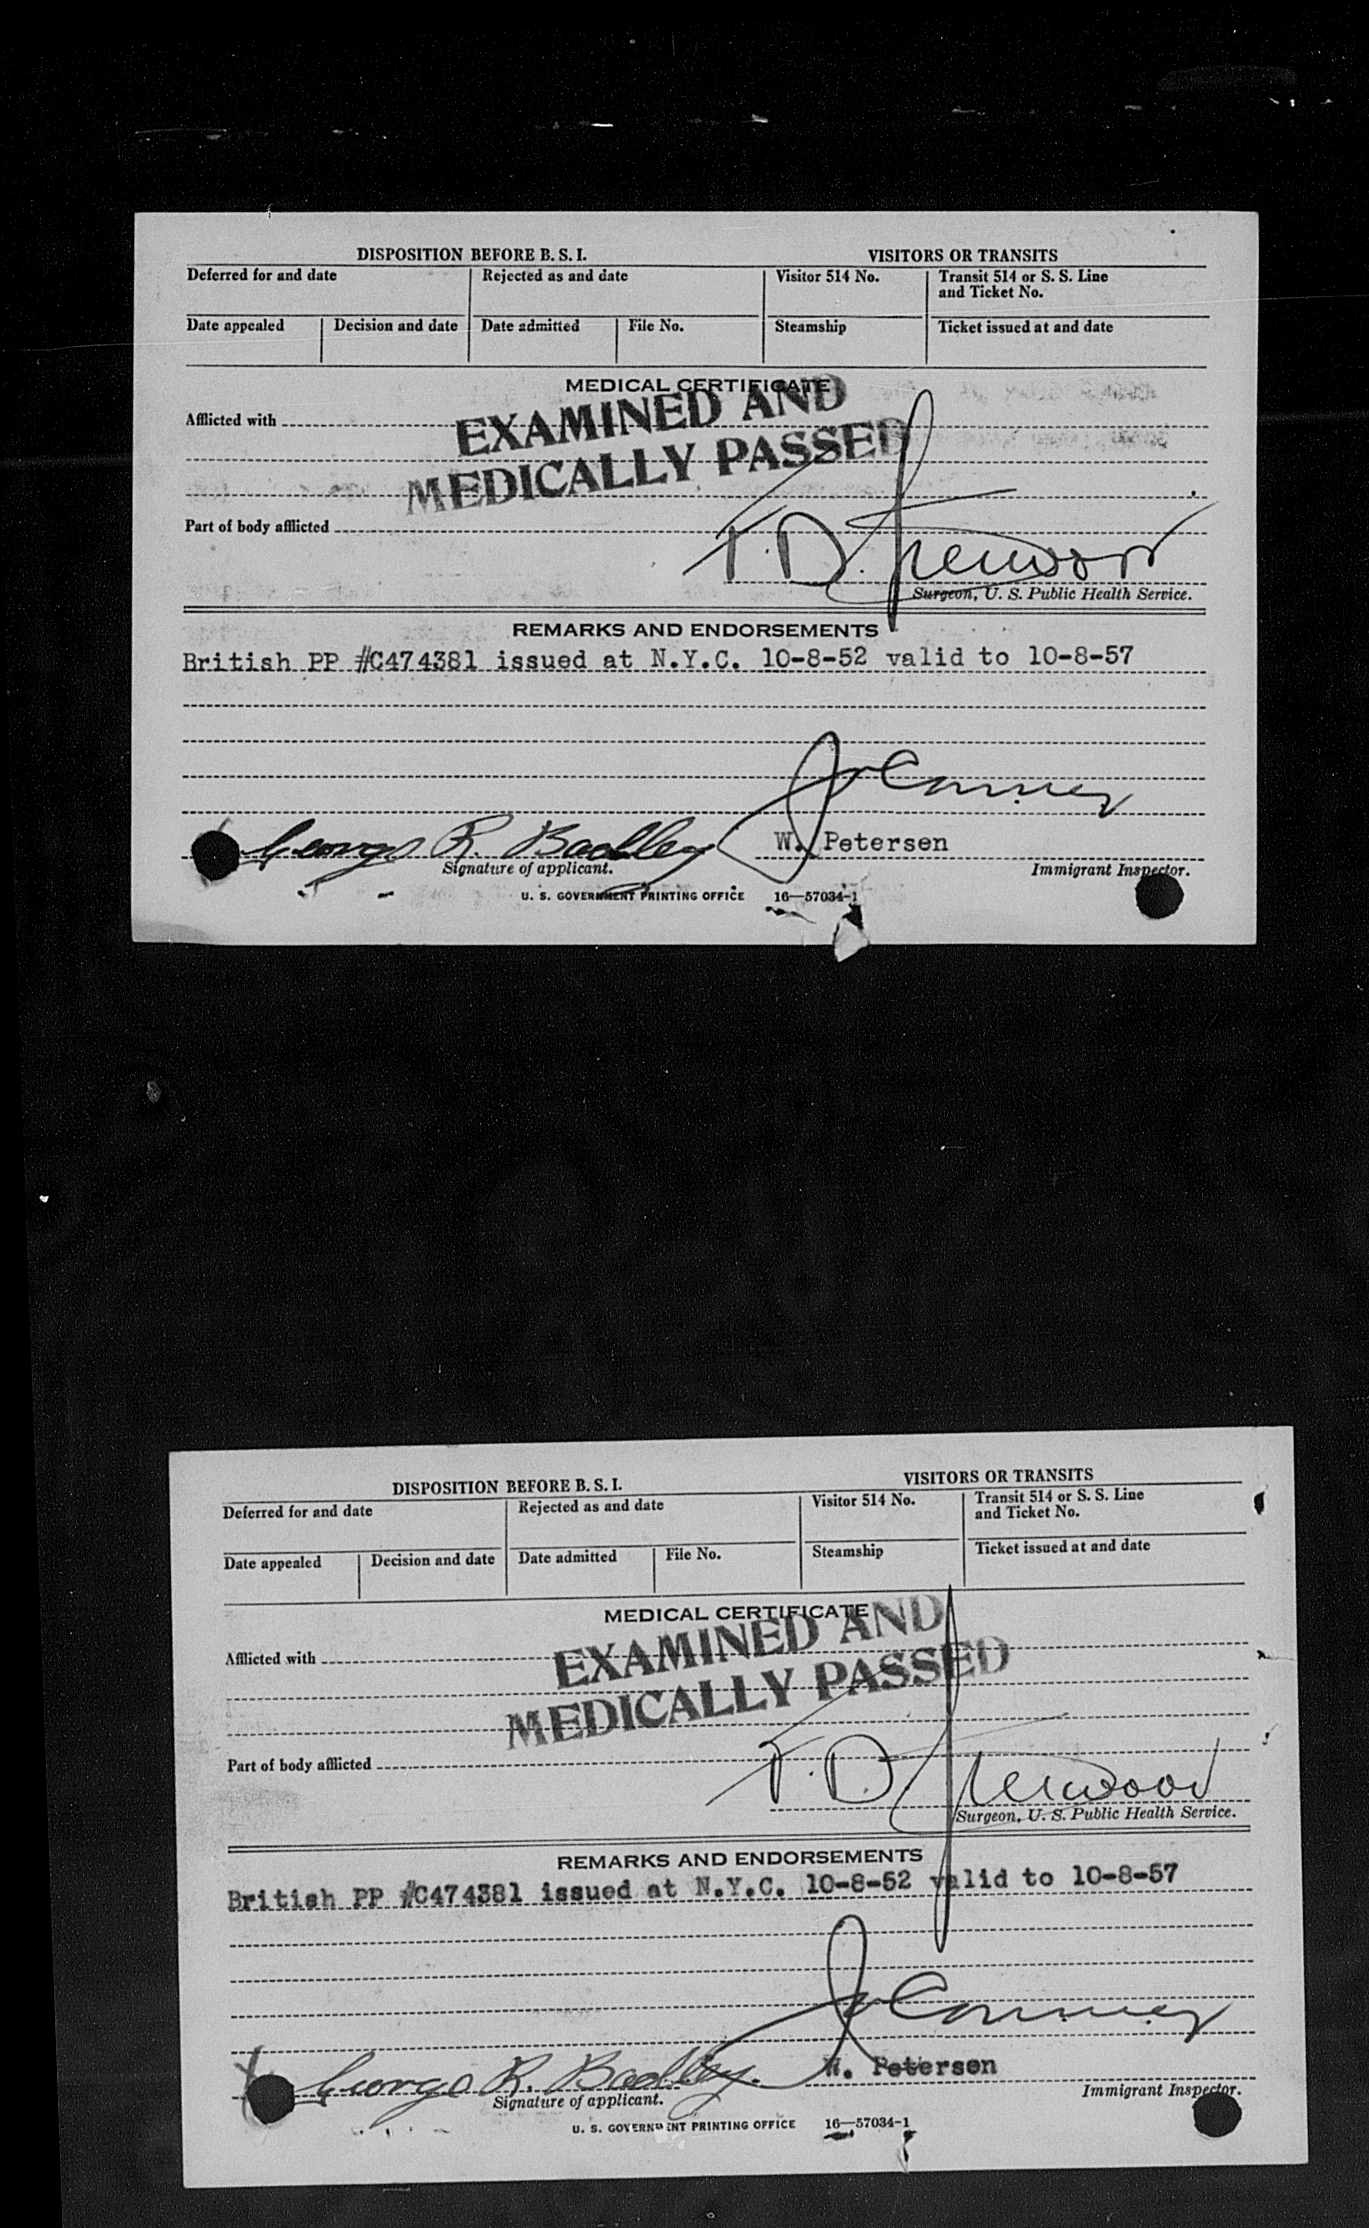 DISPOSITION BEFORE B. S. I. VISITORS OR TRANSITS
Deferred for and date Rejected as and date Visitor 514 No. Transit 514 or S. S. Line
and Ticket No.
Date appealed Decision and date Date admitted File No. Steamship Ticket issued at and date
MEDICAL CERTIFICATE
EXAMINED AND
Afflicted with
MEDICALLY PASSED
Part of body afflicted
T. D.
Surgeon, U. S. Public Health Service.
REMARKS AND ENDORSEMENTS
British PP #C474381 issued at N.Y.C. 10-8-52 valid to 10-8-57
George R. Badley W. Petersen
Signature of applicant. Immigrant Inspector.
U. S. GOVERNMENT PRINTING OFFICE 16—57034-1
DISPOSITION BEFORE B. S. I. VISITORS OR TRANSITS
Deferred for and date Rejected as and date Visitor 514 No. Transit 514 or S. S. Line
and Ticket No.
Date appealed Decision and date Date admitted File No. Steamship Ticket issued at and date
MEDICAL CERTIFICATE
EXAMINED AND
Afflicted with
MEDICALLY PASSED
Part of body afflicted
T. D.
Surgeon, U. S. Public Health Service.
REMARKS AND ENDORSEMENTS
British PP #C474381 issued at N.Y.C. 10-8-52 valid to 10-8-57
George R. Badley. W. Petersen
Signature of applicant. Immigrant Inspector.
U. S. GOVERNMENT PRINTING OFFICE 16—57034-1